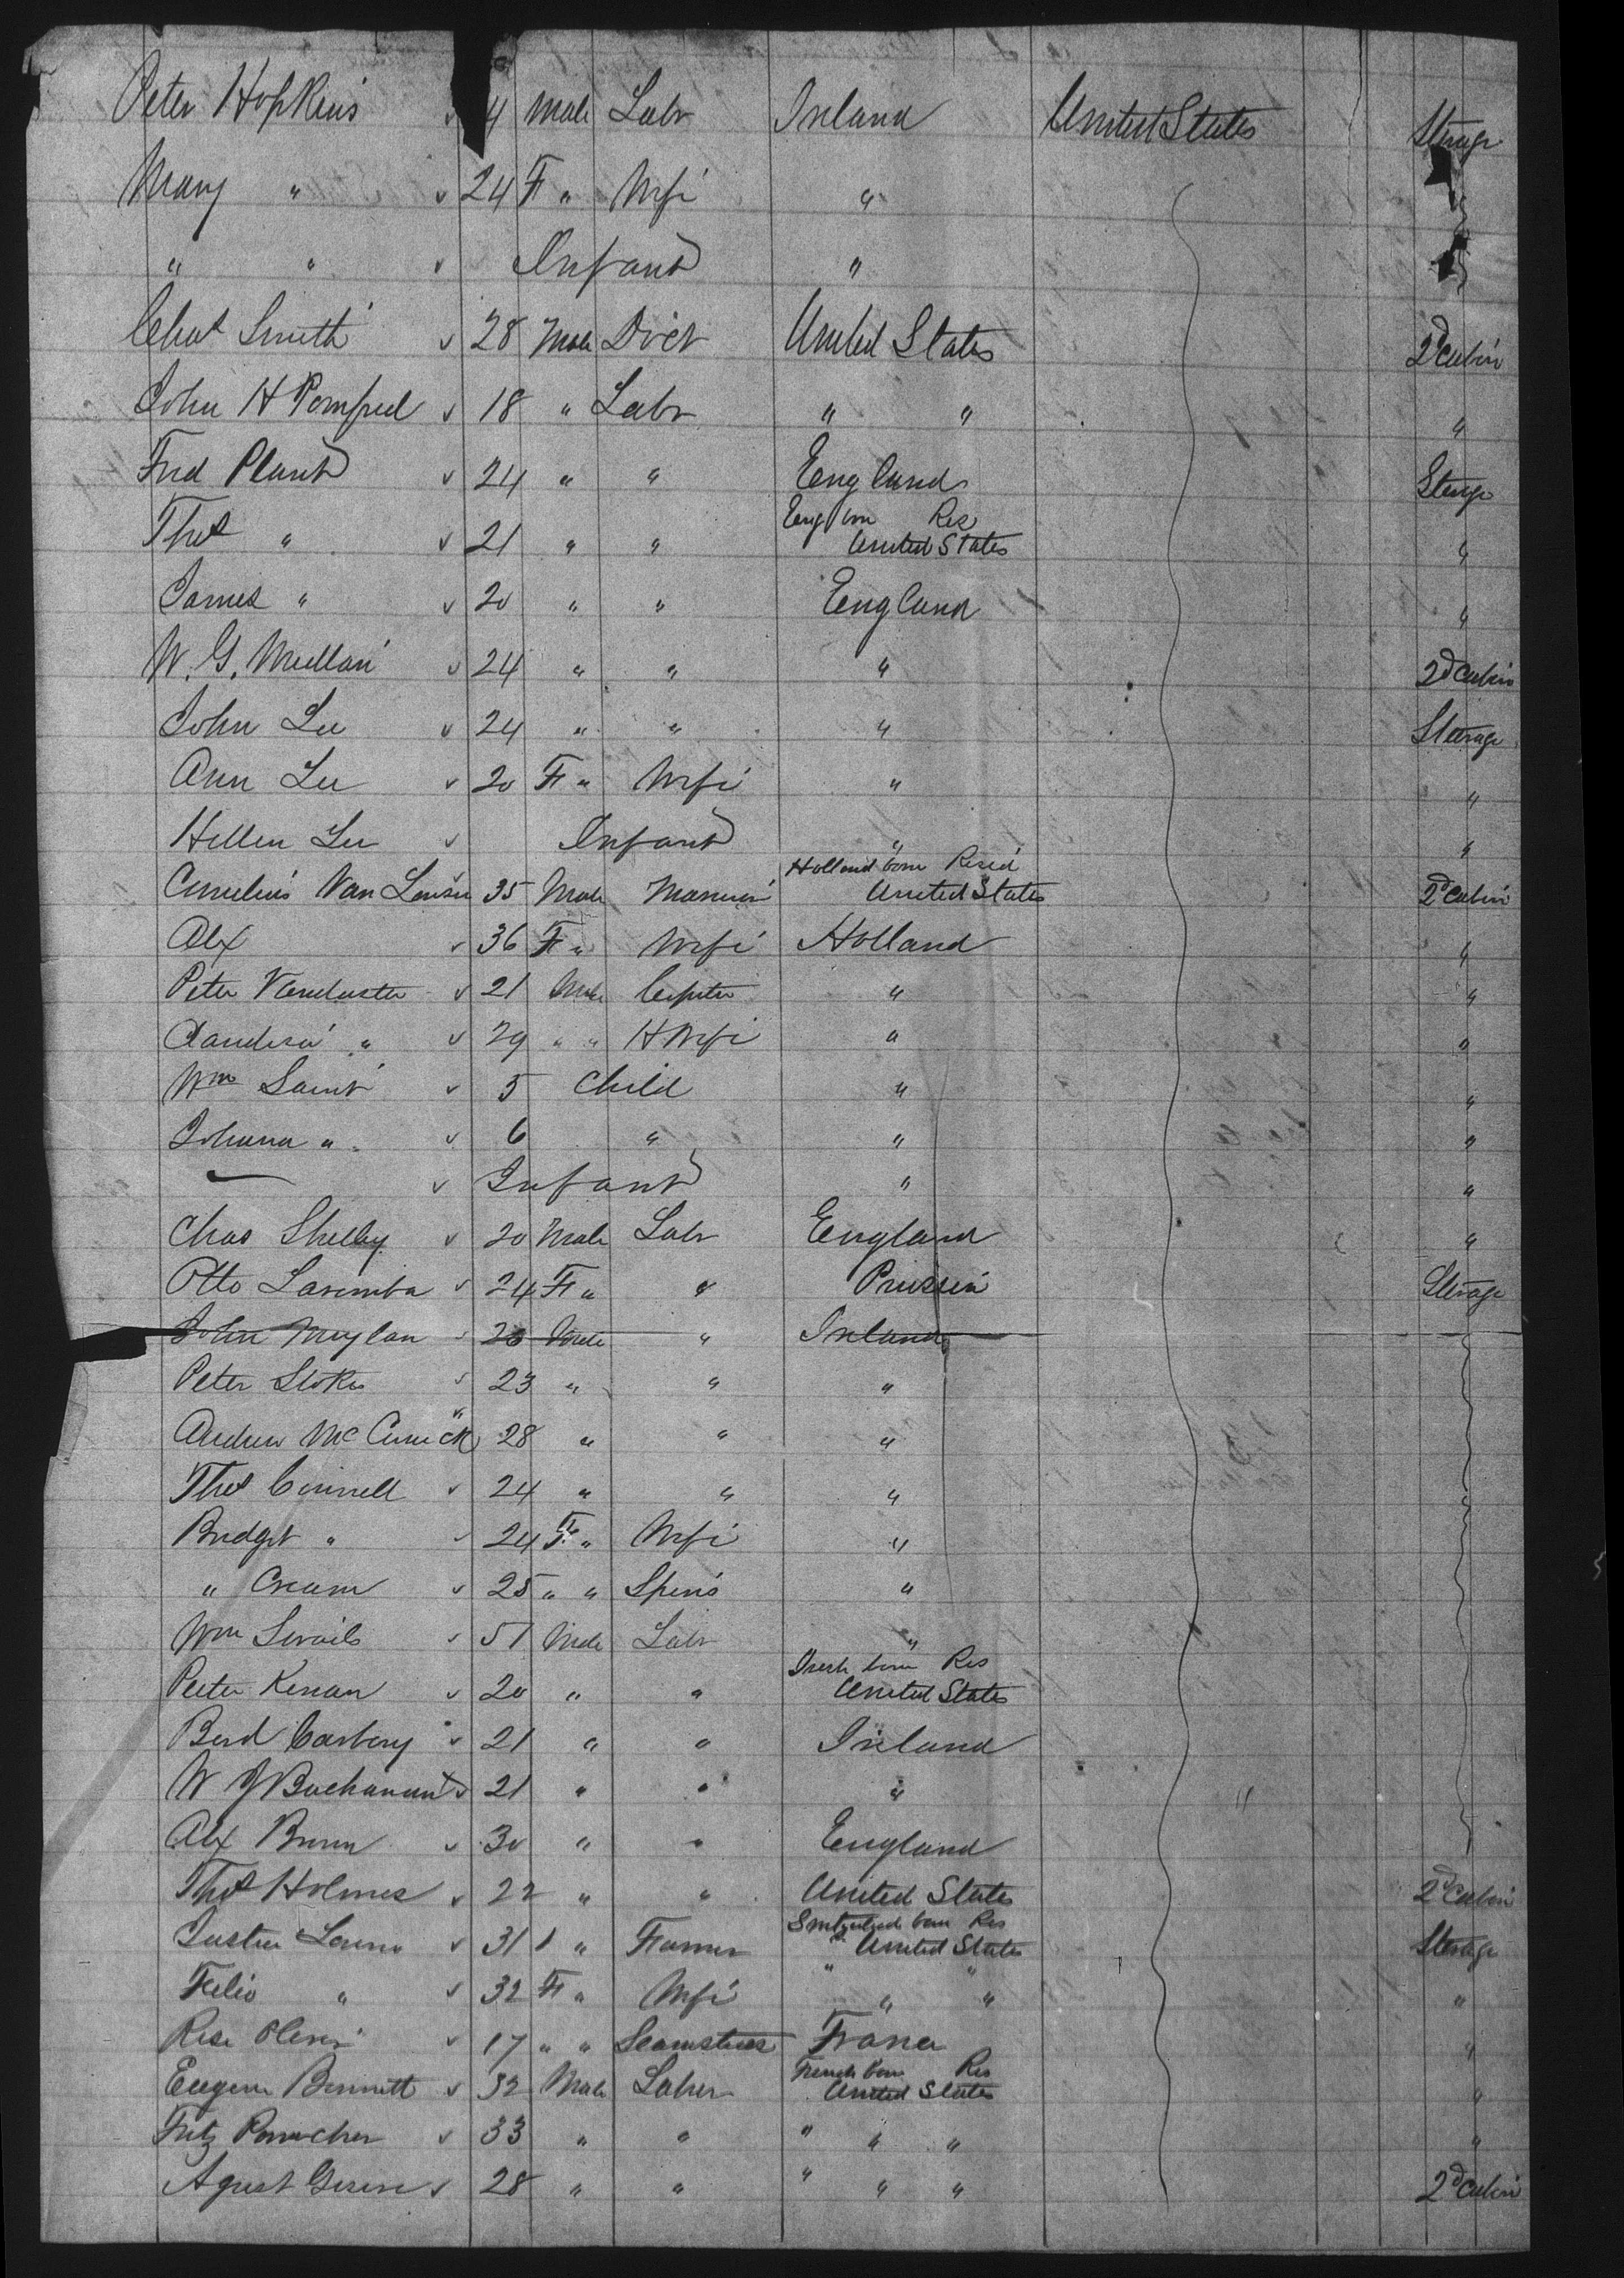 Peter Hopkins 4 Male Labr Ireland United States Sterage
Mary " 24 F " Wife "
" " Infant "
Chas Smith 28 Male United States 2d Cabin
John H Pomfred 18 " Labr " " "
Fred Plant 24 " " England Sterage
Thos " 21 " " Eng born Res United States "
James " 20 " " England "
W. G. Mullan 24 " " " 2d Cabin
John Lee 24 " " " Steerage
Ann Lee 20 F " Wife " "
Hellen Lee Infant " "
Cornelius Van 35 Male Holland born Resid United States 2d Cabin
Alex 36 F " Wife Holland "
Peter 21 Male Capenter " "
" 29 " " H Wife " "
Wm Saint 5 Child " "
Johana " 6 " " "
Infant " "
Chas Shelby 20 Male Labr England "
Otto 24 F " " Prussia Sterage
John Moylan Male " Ireland
Peter Stokes 23 " " "
Andrew McCormick 28 " " "
Thos Connell 24 " " "
Bridget " 24 F " Wife "
" Crean 25 " " Spins "
Wm 51 Male Labr "
Peeter Kenan 20 " " Irish born Res United States
Berd Carbery 21 " " Ireland
W J Buchanan 21 " " "
Alex 30 " " England
Thos Holmes 22 " " United States 2d Cabin
31 " Farmer Switzerland born Res United States Sterage
" 32 F " Wife " " "
17 " " Seamstress France "
Eugene Bennett 32 Male Labrer French born Res United States "
Fritz 33 " " " " " "
28 " " " " " 2d Cabin